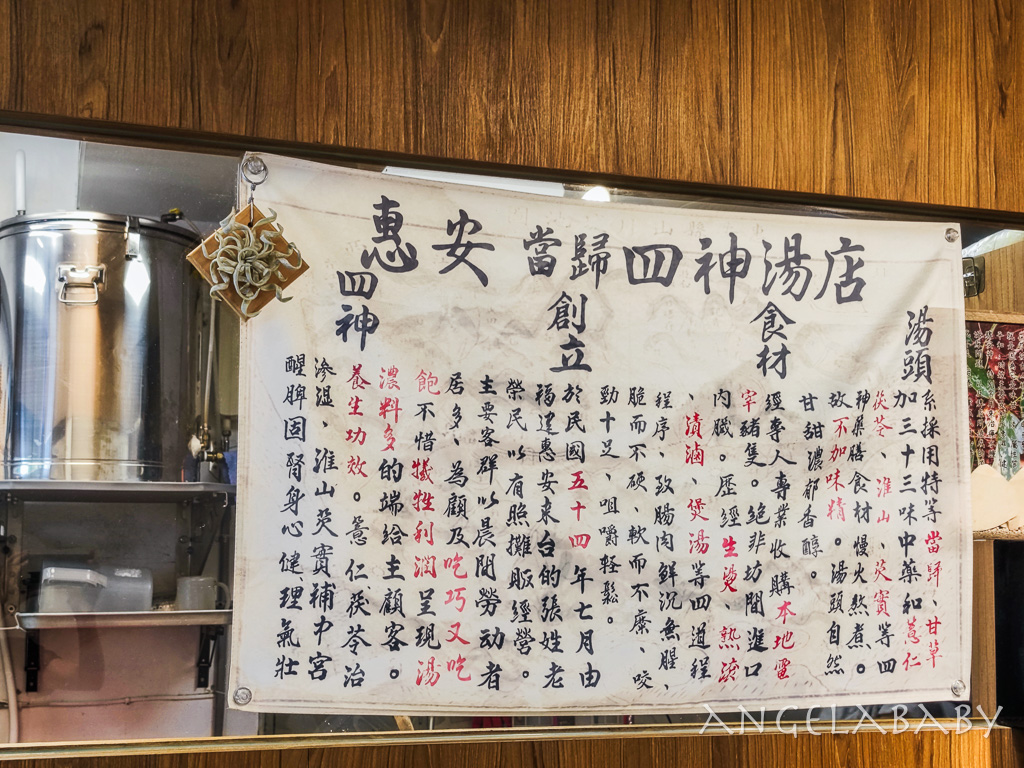 惠安當歸四神湯店
湯頭
系採用特等當歸、甘草
加三十三味中藥和薏仁
茯苓、淮山、芡實等四
神藥膳食材慢火熬煮。
故不加味精。湯頭自然
甘甜濃郁香醇。
食材
經專人專業收購本地電
宰豬隻。絕非坊間進口
內臟。歷經生燙、熱滾
、漬滷、煲湯等四道程
程序、致腸肉鮮沉無腥、
脆而不硬、軟而不糜、咬
勁十足、咀嚼輕鬆。
創立
於民國五十四年七月由
福建惠安來台的張姓老
榮民以有照攤販經營。
主要客群以晨間勞动者
居多、為顧及吃巧又吃
飽不惜犧牲利潤呈現湯
濃料多的端給主顧客。
四神
養生功效。薏仁茯苓治
滲濕、淮山芡實補中宮
醒脾固腎身心健、理氣壯
ANGELABABY